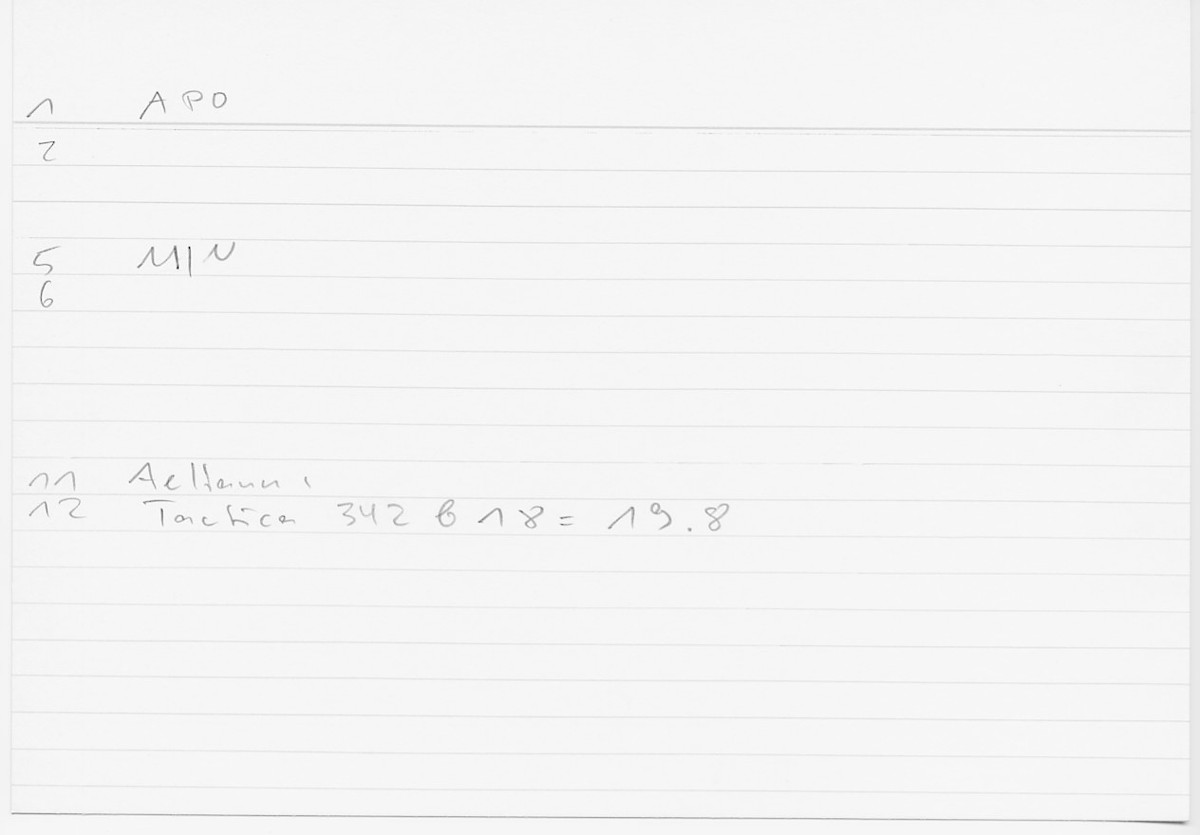 1 APO
2
5 MIN
6
11
12 Tactica 342 b 18 = 19.8